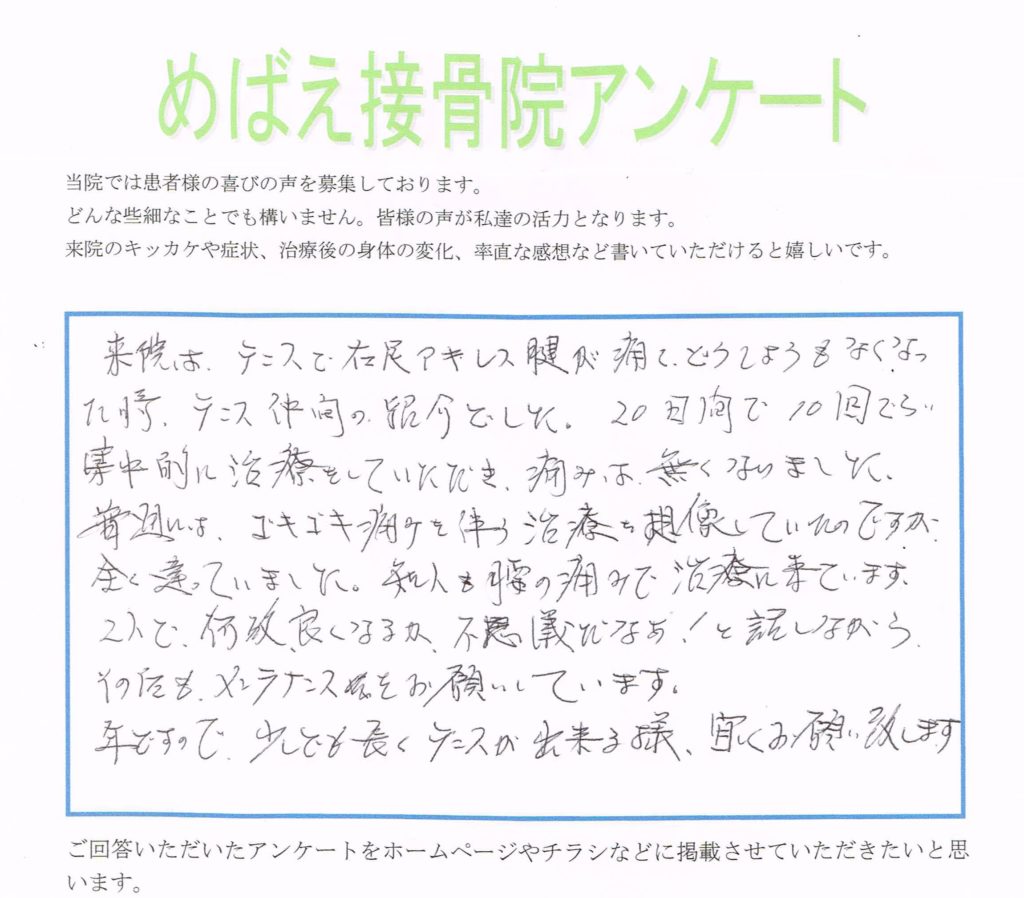 めばえ接骨院アンケート
当院では患者様の喜びの声を募集しております。
どんな些細なことでも構いません。皆様の声が私達の活力となります。
来院のキッカケや症状、治療後の身体の変化、率直な感想など書いていただけると嬉しいです。
来院は、テニスで右足アキレス腱が痛くてどうしようもなくなっ
た時、テニス仲間の紹介でした。20日間で10回ぐらい
集中的に治療をしていただき、痛みは無くなりました。
普通は、ゴキゴキ痛みを伴う治療を想像していたのですが、
全く違っていました。知人も腰の痛みで治療に来ています。
2人で、何故良くなるか、不思議だなあ!と話しながら、
その后も、メンテナンスをお願いしています。
年ですので、少しでも長くテニスが出来る様、宜しくお願い致します
ご回答いただいたアンケートをホームページやチラシなどに掲載させていただきたいと思
います。